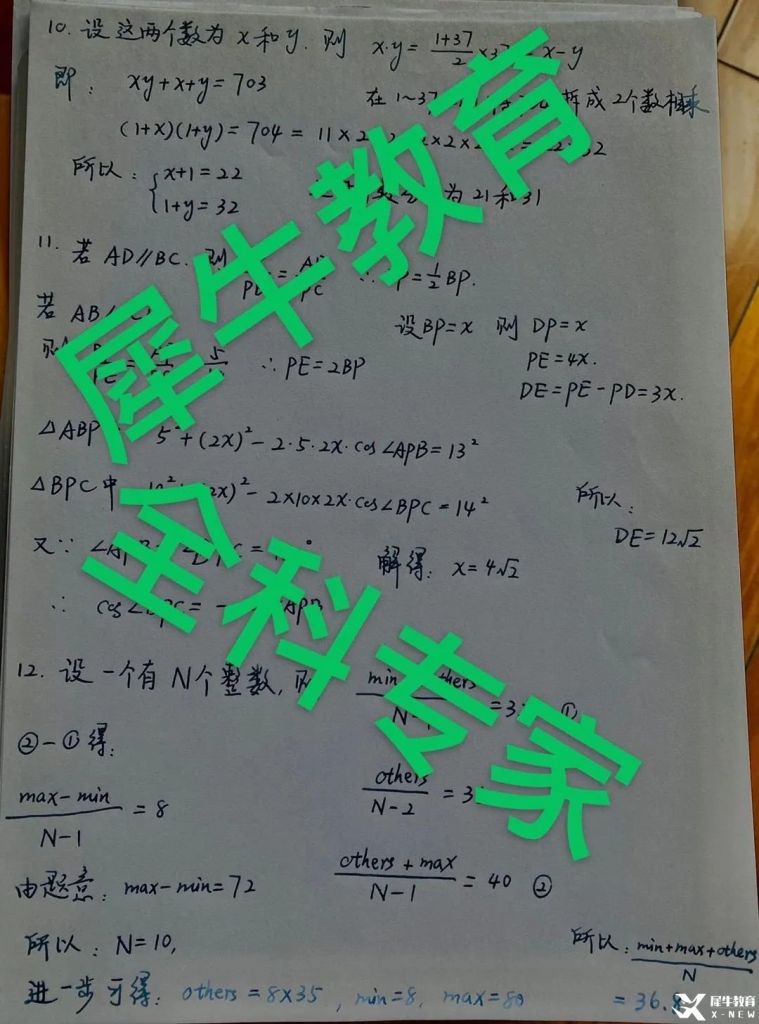 10. 设这两个数为 x 和 y. 则 x·y = (1+37)/2 ×37 x-y
即: xy+x+y=703
在 1~37 拆成 2个数相乘
(1+x)(1+y)=704 = 11×2 ×2×2
所以: { x+1=22
1+y=32
为 21和31
11. 若 AD∥BC. 则 = ½BP.
若 AB
设BP=x 则 DP=x
则 ∴ PE=2BP
PE=4x.
DE=PE-PD=3x.
△ABP 5²+(2x)²-2·5·2x·cos∠APB=13²
△BPC中 (2x)²-2×10×2x·cos∠BPC=14²
所以:
DE=12√2
又∵
解得: x=4√2
∴ cos∠BPC= -
12. 设一个有 N个整数, 则 min
②-① 得:
(max-min)/(N-1) = 8
others/(N-2) = 3
由题意: max-min=72
(others+max)/(N-1) = 40 ②
所以: N=10,
所以: (min+max+others)/N
进一步可得: others=8×35, min=8, max=80
=36.8
犀牛教育
全科专家
犀牛教育
X-NEW